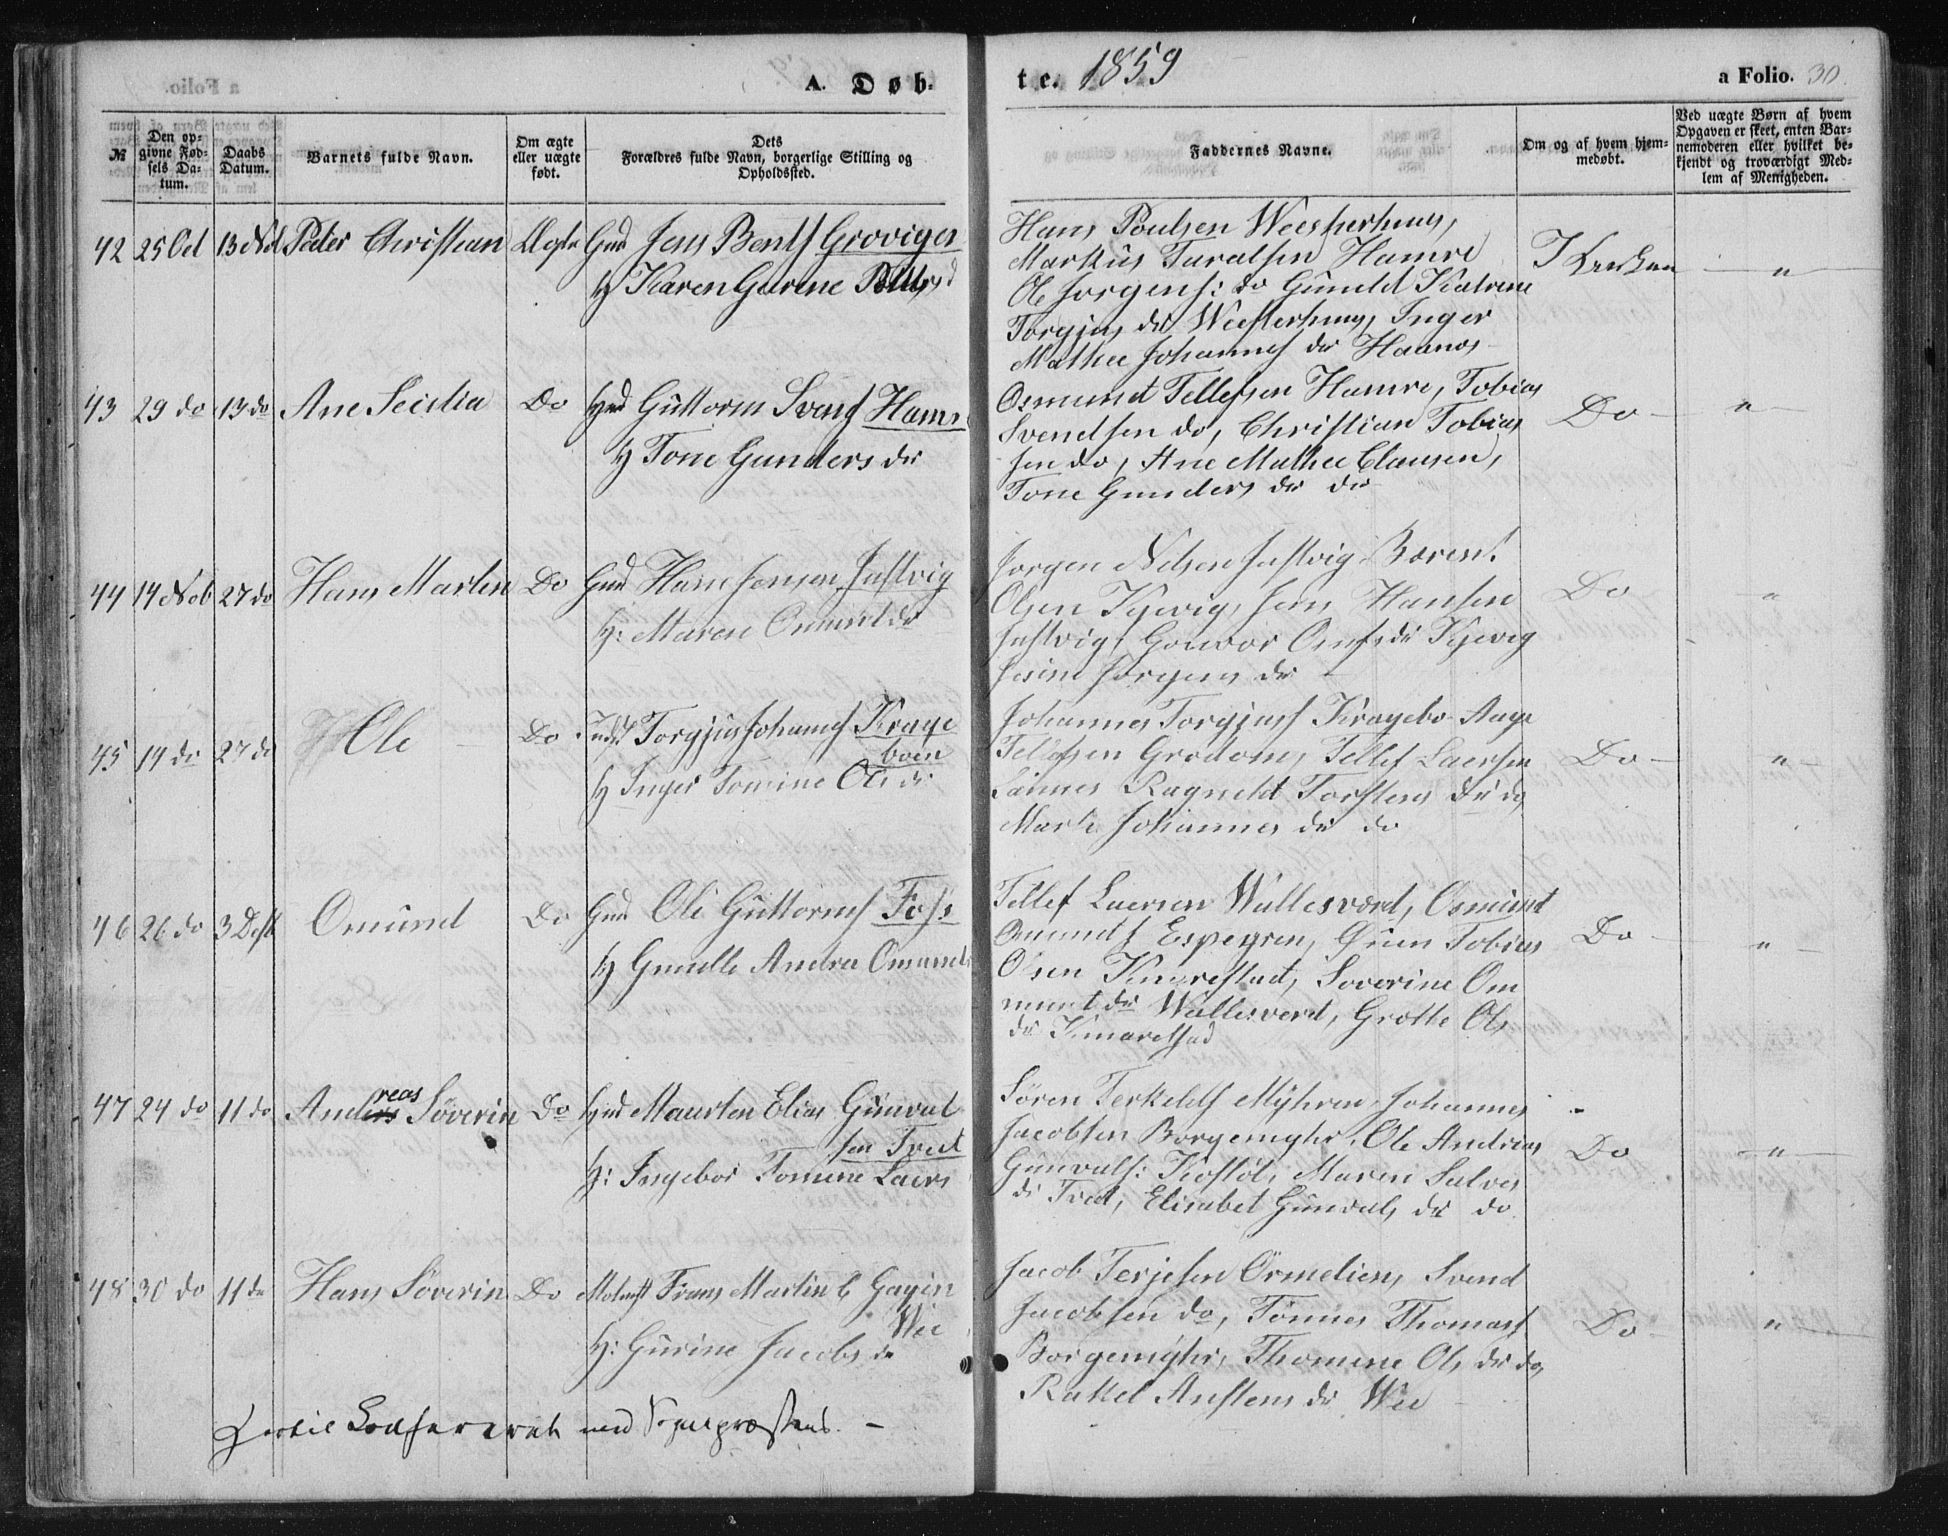 A. Døb-
te. 1859
a Folio. 30.
№
Den op-
givne Fød-
sels Da-
tum.
Daabs
Datum.
Barnets fulde Navn.
Om ægte
eller uægte
født.
Dets
Forældres fulde Navn, borgerlige Stilling og
Opholdssted.
Faddernes Navne.
Om og af hvem hjem-
medøbt.
Ved uægte Børn af hvem
Opgaven er skeet, enten Bar-
nemoderen eller hvilket be-
kjendt og troværdigt Med-
lem af Menigheden.
42 25 Oct 13 Peder Christian Ægte Gmd Jens Bents Grovigen
H Karen Gurine
Hans Poulsen Westerhuus,
Markus Taralsen Hamre
Ole Jorgens: do Gunild Katrine
Torgjus dr Westerhuus, Inger
Mathea Johannes dr
Kirken "
43 29 do 13 do Ane Secilia Do Hmd Guttorm Svens Hamre
H Tone Gunders dr
Osmund Tellefsen Hamre, Tobias
Svendsen do, Christian Tobias
sen do, Ane Mathea Clausen,
Tone Gunders dr do
Do "
44 14 Nob 27 do Hans Martin Do Gmd Hans Jensen Justvig
H: Maren Omund dr
Jorgen Nilsen Justvig Berent
Olsen Kjevig, Jens Hansen
Justvig, Gonvor dr Kjevig
Jorgens dr
Do "
45 14 do 27 do Ole Do Torgjus Johanns Krage
boen
H Inger Tomine Ols dr
Johannes Torgjuss Kragebo Aage
Tellefsen Grødom, Tellef Laersen
Ragnild Torstens dr do
Johannes dr do
Do "
46 26 do 3 Desb Omund Do Gmd Ole Guttorms Foss
H Gunille Andrea Omunds
Tellef Laersen Wallesverd, Osmund
Omunds Espegren, Tobias
Olsen Kinarestad, Soverine Om
mund dr Wallesverd, Grotte Ols
dr Kinarestad
Do "
47 24 do 11 do Anders reas Söverin Do Hmd Maurten Elias Gunval
sen Tved
H: Ingebor Tomine Laers
Sören Terkelds Myhren Johannes
Jacobsen Ole Andreas
Gunvals: Maren Salves
dr Tved, Elisabet Gunvals dr do
Do "
48 30 do 11 do Hans Söverin Do Frans Martin
Wee
H: Gurine Jacobs dr
Jacob Terjesen Ormelien, Svend
Jacobsen do, Tönnes Thomass
Thomine Ols dr do,
Rakel Anstens dr Wee
Do "
Hertil Confereret med Sognepræstens. -